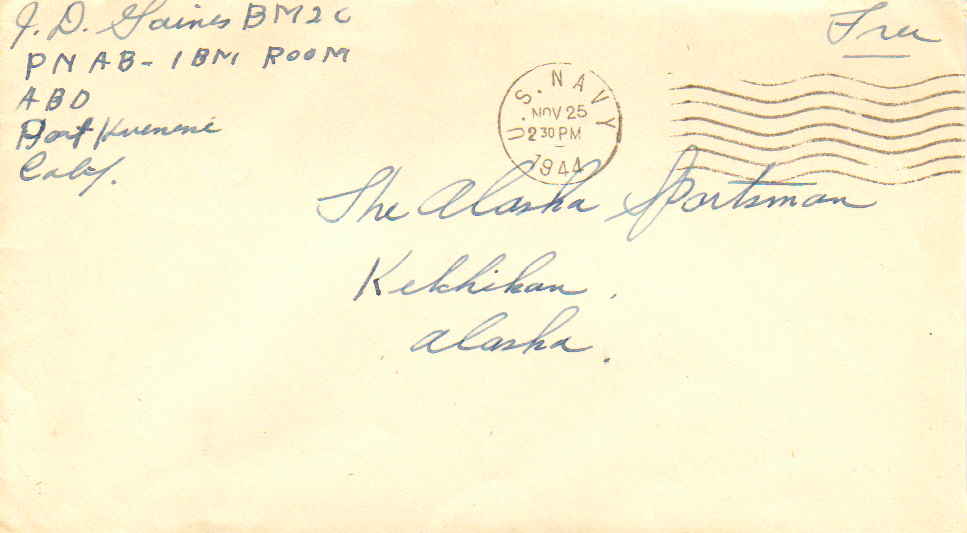 J. D. Gaines BM2C
PNAB - IBM ROOM
ABD
Port Hueneme
Calif.
Free
U.S. NAVY
NOV 25
2 30 PM
1944
The Alaska Sportsman
Ketchikan.
Alaska.